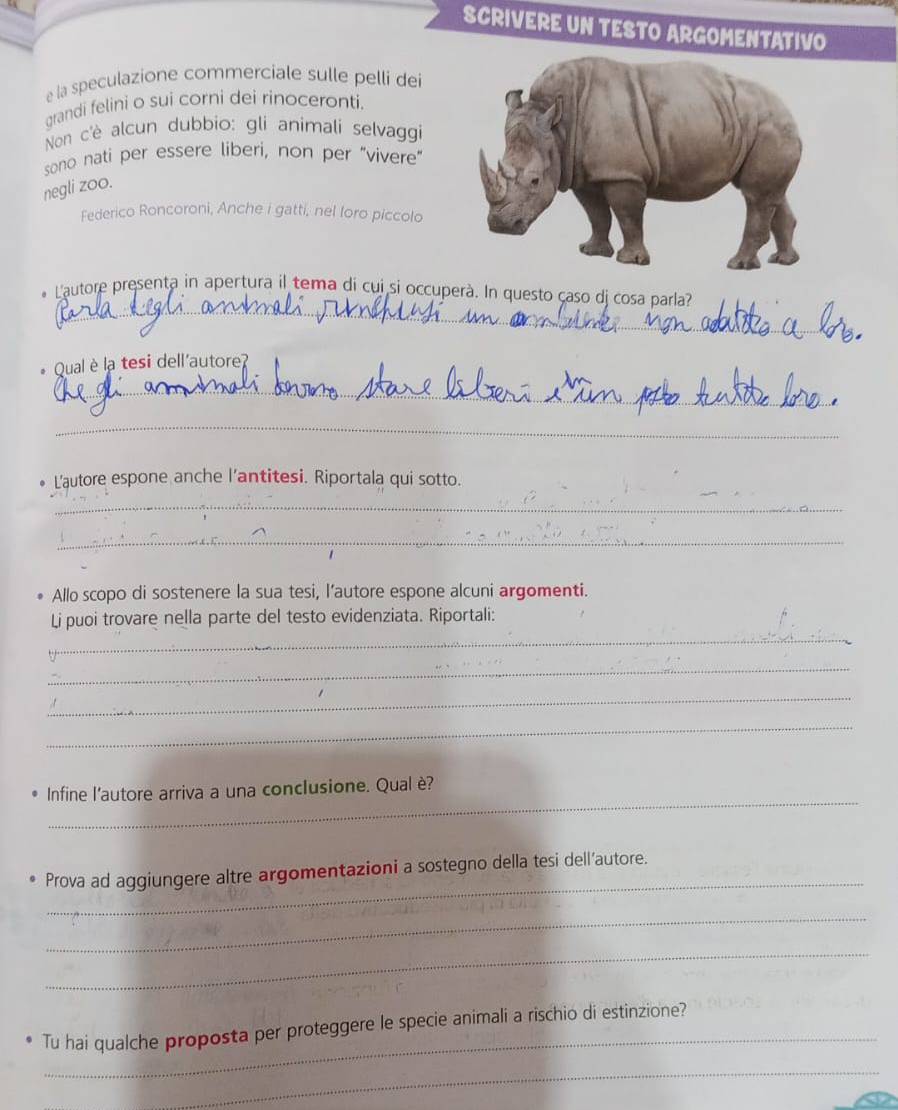 SCRIVERE UN TESTO ARGOMENTATIVO
e la speculazione commerciale sulle pelli dei
grandi felini o sui corni dei rinoceronti.
Non c'è alcun dubbio: gli animali selvaggi
sono nati per essere liberi, non per "vivere"
negli zoo.
Federico Roncoroni, Anche i gatti, nel loro piccolo
• L'autore presenta in apertura il tema di cui si occuperà. In questo caso di cosa parla?
Parla degli animali in un non a loro.
• Qual è la tesi dell'autore?
Che gli animali devono stare liberi e in un posto tutto loro.
• L'autore espone anche l'antitesi. Riportala qui sotto.
• Allo scopo di sostenere la sua tesi, l'autore espone alcuni argomenti.
Li puoi trovare nella parte del testo evidenziata. Riportali:
• Infine l'autore arriva a una conclusione. Qual è?
• Prova ad aggiungere altre argomentazioni a sostegno della tesi dell'autore.
• Tu hai qualche proposta per proteggere le specie animali a rischio di estinzione?